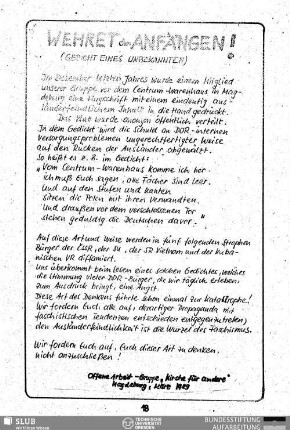 WEHRET den ANFÄNGEN!
(GEDICHT EINES UNBEKANNTEN)
Im Dezember letzten Jahres wurde einem Mitglied
unserer Gruppe vor dem Centrum-Warenhaus in Mag-
deburg eine Flugschrift mit einem eindeutig aus-
länderfeindlichem Inhalt in die Hand gedrückt.
Das Blatt wurde anonym öffentlich verteilt.
In dem Gedicht wird die Schuld an DDR-internen
Versorgungsproblemen ungerechtfertigter Weise
auf den Rücken der Ausländer abgewälzt.
So heißt es z. B. im Gedicht:
"Vom Centrum-Warenhaus komme ich her.
Ich muß Euch sagen, alle Fächer sind leer.
Und auf den Stufen und Kanten
Sitzen die Polen mit ihren Verwandten.
Und draußen vor dem verschlossenen Tor
stehen geduldig die Deutschen davor."
Auf diese Art und Weise werden in fünf folgenden Strophen
Bürger der ČSSR, der SU, der SR Vietnam und der Kuba-
nischen VR diffamiert.
Uns überkommt beim Lesen eines solchen Gedichtes, welches
die Stimmung vieler DDR-Bürger, die wir täglich erleben,
zum Ausdruck bringt, eine Angst.
Diese Art des Denkens führte schon einmal zur Katastrophe!
Wir fordern Euch alle auf, derartiger Propaganda mit
faschistischen Tendenzen entschieden entgegenzutreten,
denn Ausländerfeindlichkeit ist die Wurzel des Faschismus.
Wir fordern Euch auf, Euch dieser Art zu denken,
nicht anzuschließen!
Offene Arbeit - Gruppe "Kirche für andere"
Magdeburg, März 1989
18
SLUB
Wir führen Wissen.
TECHNISCHE
UNIVERSITÄT
DRESDEN
BUNDESSTIFTUNG
AUFARBEITUNG